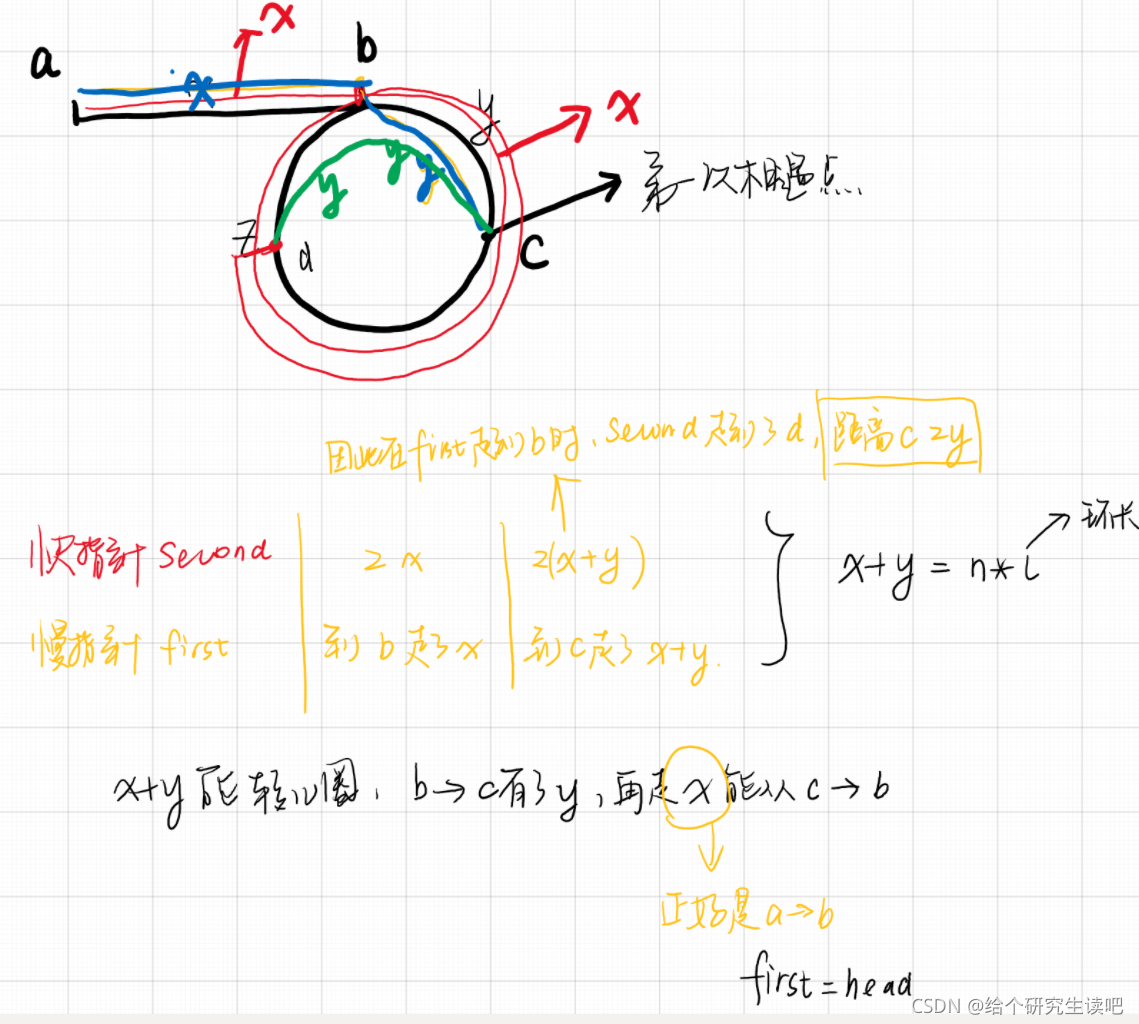 x
a
b
x
y
x
y
y
y
第一次相遇点
z
d
c
因此在first走到b时,second走到了d,距离c 2y
快指针 second
2x
2(x+y)
x+y = n*L
环长
慢指针 first
到b走了x
到c走了x+y.
x+y能转n圈, b→c有了y,再走x能从c→b
正好是a→b
first=head
CSDN @给个研究生读吧